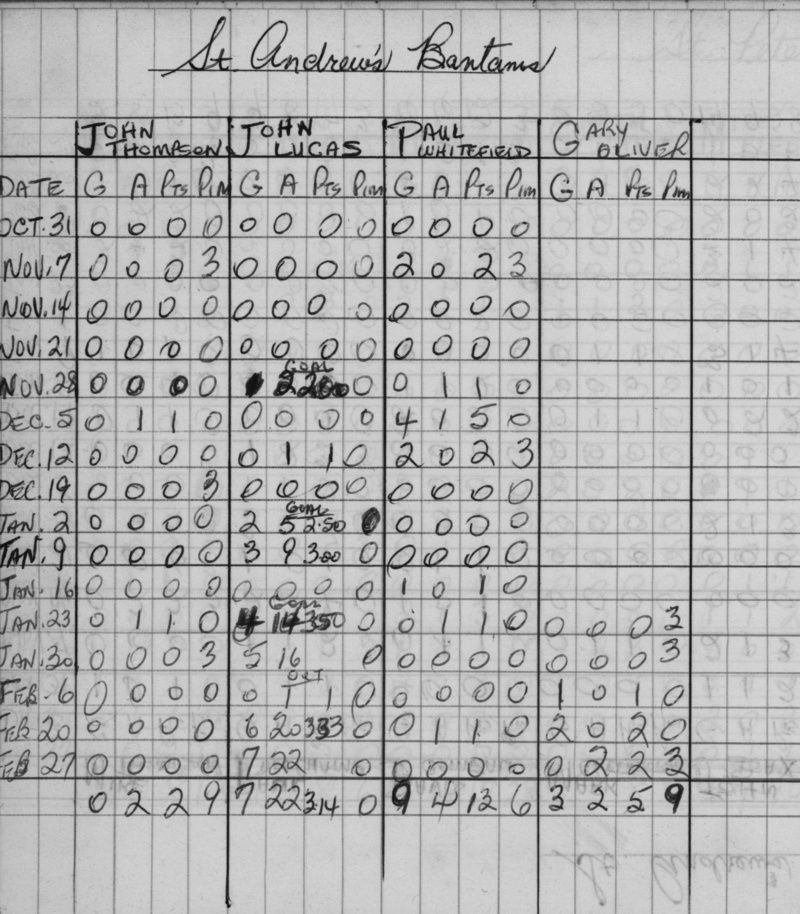 St. Andrew's Bantams
JOHN THOMPSON JOHN LUCAS PAUL WHITEFIELD GARY OLIVER
DATE G A PTS PIM G A PTS PIM G A PTS PIM G A PTS PIM
OCT. 31 0 0 0 0 0 0 0 0 0 0 0 0
NOV. 7 0 0 0 3 0 0 0 0 2 0 2 3
NOV. 14 0 0 0 0 0 0 0 0 0 0 0 0
NOV. 21 0 0 0 0 0 0 0 0 0 0 0 0
GOAL
NOV. 28 0 0 0 0 2 0 0 1 1 0
DEC. 5 0 1 1 0 0 0 0 0 4 1 5 0
DEC. 12 0 0 0 0 0 1 1 0 2 0 2 3
DEC. 19 0 0 0 3 0 0 0 0 0 0 0 0
GOAL
JAN. 2 0 0 0 0 2 5 2.50 0 0 0 0 0
JAN. 9 0 0 0 0 3 9 300 0 0 0 0 0
JAN. 16 0 0 0 0 0 0 0 0 1 0 1 0
GOAL
JAN. 23 0 1 1 0 4 14 350 0 0 1 1 0 0 0 0 3
JAN. 30 0 0 0 3 5 16 0 0 0 0 0 0 0 0 3
OUT
FEB. 6 0 0 0 0 0 1 1 0 0 0 0 0 1 0 1 0
FEB 20 0 0 0 0 6 20 333 0 0 1 1 0 2 0 2 0
FEB 27 0 0 0 0 7 22 0 0 0 0 0 0 2 2 3
0 2 2 9 7 22 314 0 9 4 13 6 3 2 5 9